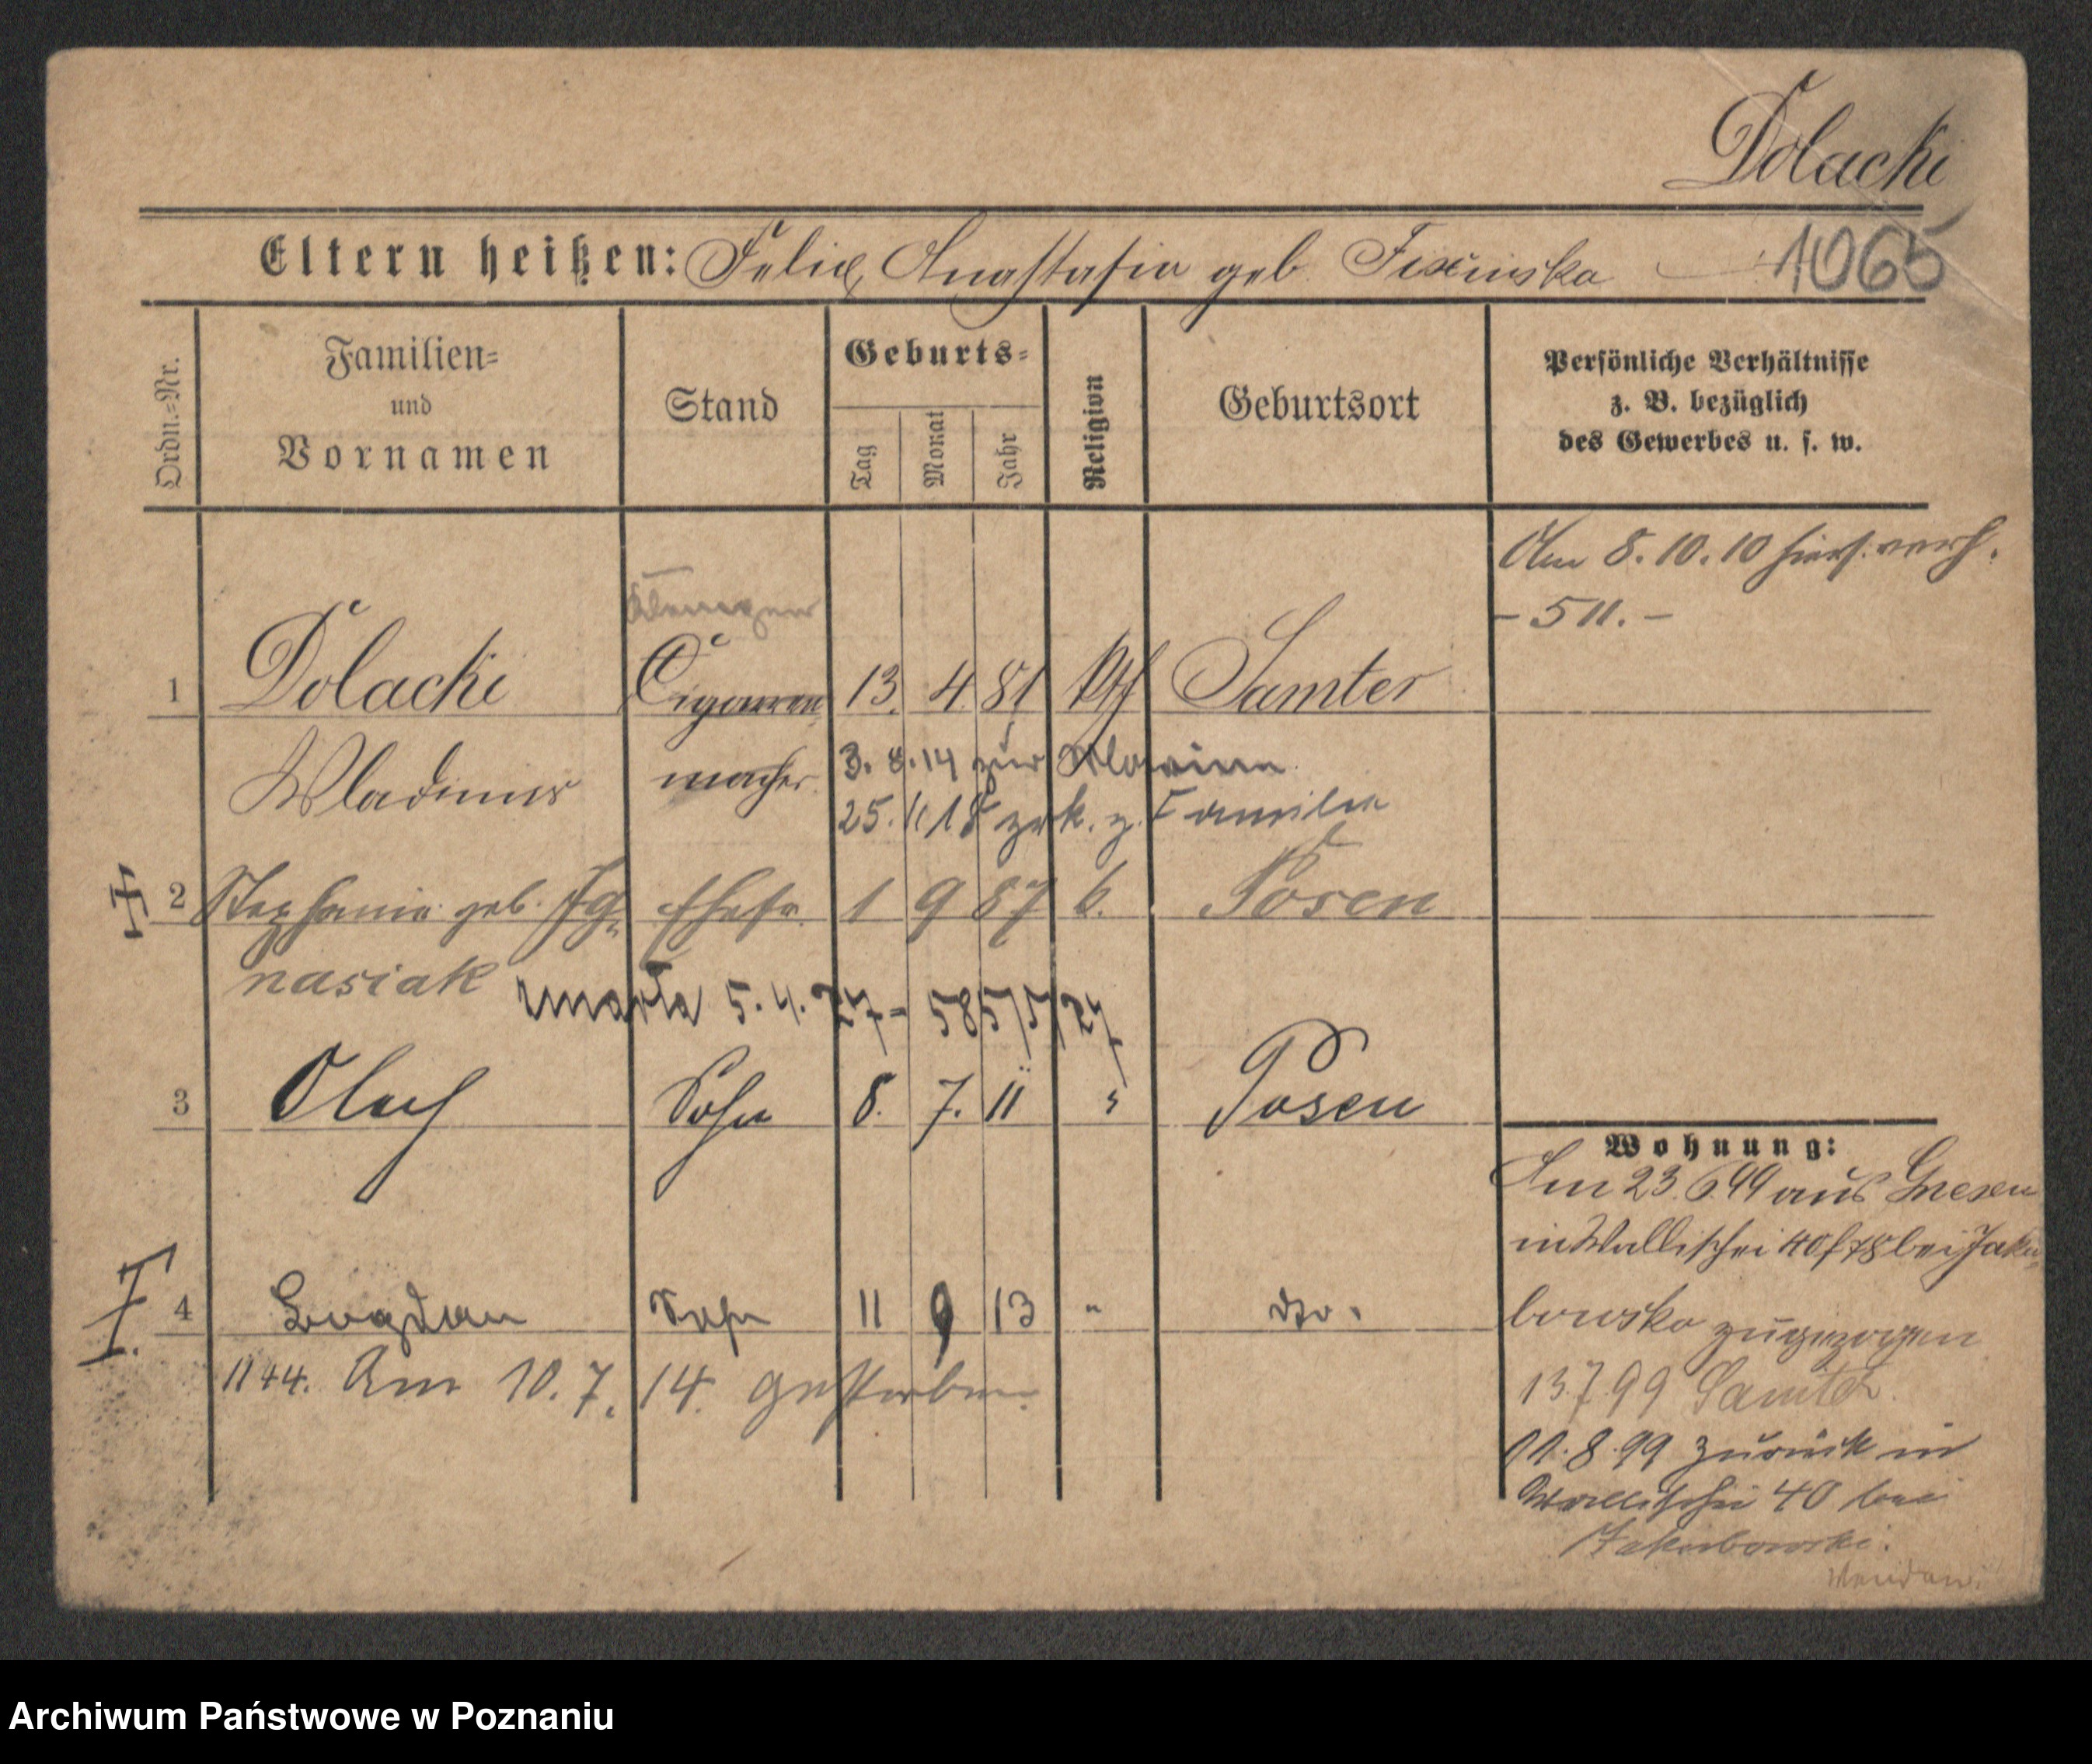 Dolacki
Eltern heißen: Felix, Anastasia geb. Fixinska
1065
Ordn.=Nr.
Familien=
und
Vornamen
Stand
Geburts=
Tag
Monat
Jahr
Religion
Geburtsort
Persönliche Verhältnisse
z. B. bezüglich
des Gewerbes u. s. w.
Am 8.10.10 hiers. verh.
- 511. -
1 Dolacki Cigarren 13. 4. 81 Kth Samter
Wladimir macher.
3. 8. 14 zur Marine
25. 11 18 zrk. z. Familie
2 Stephanie geb. Ig= Ehefr. 1 9 87 k. Posen
nasiak
umarła 5. 4. 27 = 585/5/27
3 Olech Sohn 8. 7. 11 " Posen
4 Bogdan Sohn 11 9 13 " dto.
1144. Am 10. 7. 14. gestorben
Wohnung:
Am 23. 6. 99 aus Gnesen
in Wallischei 40/78 bei Jaku=
bowska zugezogen
13.7.99 Samter
11. 8. 99 zurück in
Wallischei 40 bei
Jakubowski.
Archiwum Państwowe w Poznaniu